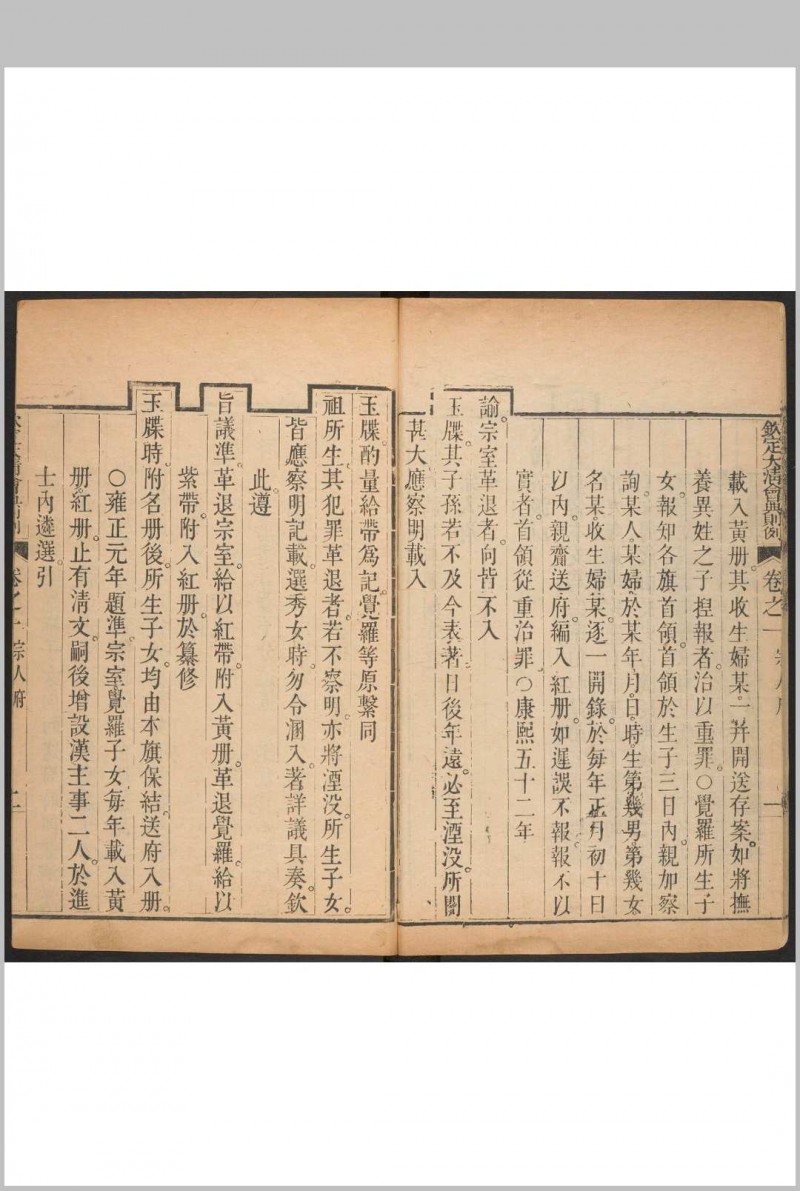 欽定大清會典則例 卷之一
載入黃册。其收生婦某一幷開送存案。如將撫
養異姓之子捏報者。治以重罪。○覺羅所生子
女。報知各旗首領。首領於生子三日內。親加察
詢。某人某婦。於某年月日時。生第幾男第幾女。
名某。收生婦某。逐一開錄。於每年正月初十日
以內。親齎送府。編入紅册。如遲誤不報。報不以
實者。首領從重治罪。○康熙五十二年
諭。宗室革退者。向皆不入
玉牒。其子孫若不及今表著。日後年遠。必至湮没。所關
甚大。應察明載入
玉牒。酌量給帶爲記。覺羅等原繫同
祖所生。其犯罪革退者。若不察明。亦將湮没。所生子女。
皆應察明記載。選秀女時。勿令溷入。著詳議具奏。欽
此。遵
旨議準。革退宗室。給以紅帶。附入黃册。革退覺羅。給以
紫帶。附入紅册。於纂修
玉牒時。附名册後。所生子女。均由本旗保結送府入册。
○雍正元年。題準。宗室覺羅子女。每年載入黃
册。紅册。止有清文。嗣後增設漢主事二人。於進
士內遴選。引
卷之一 宗人府